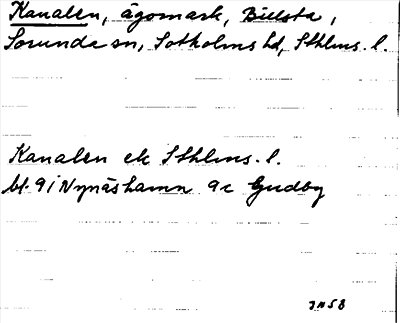 Kanalen, ägomark, Billsta,
Sorunda sn, Sotholms hd, Sthlms. l.
Kanalen ek Sthlms. l.
bl. 9i Nynäshamn 9c Gudby